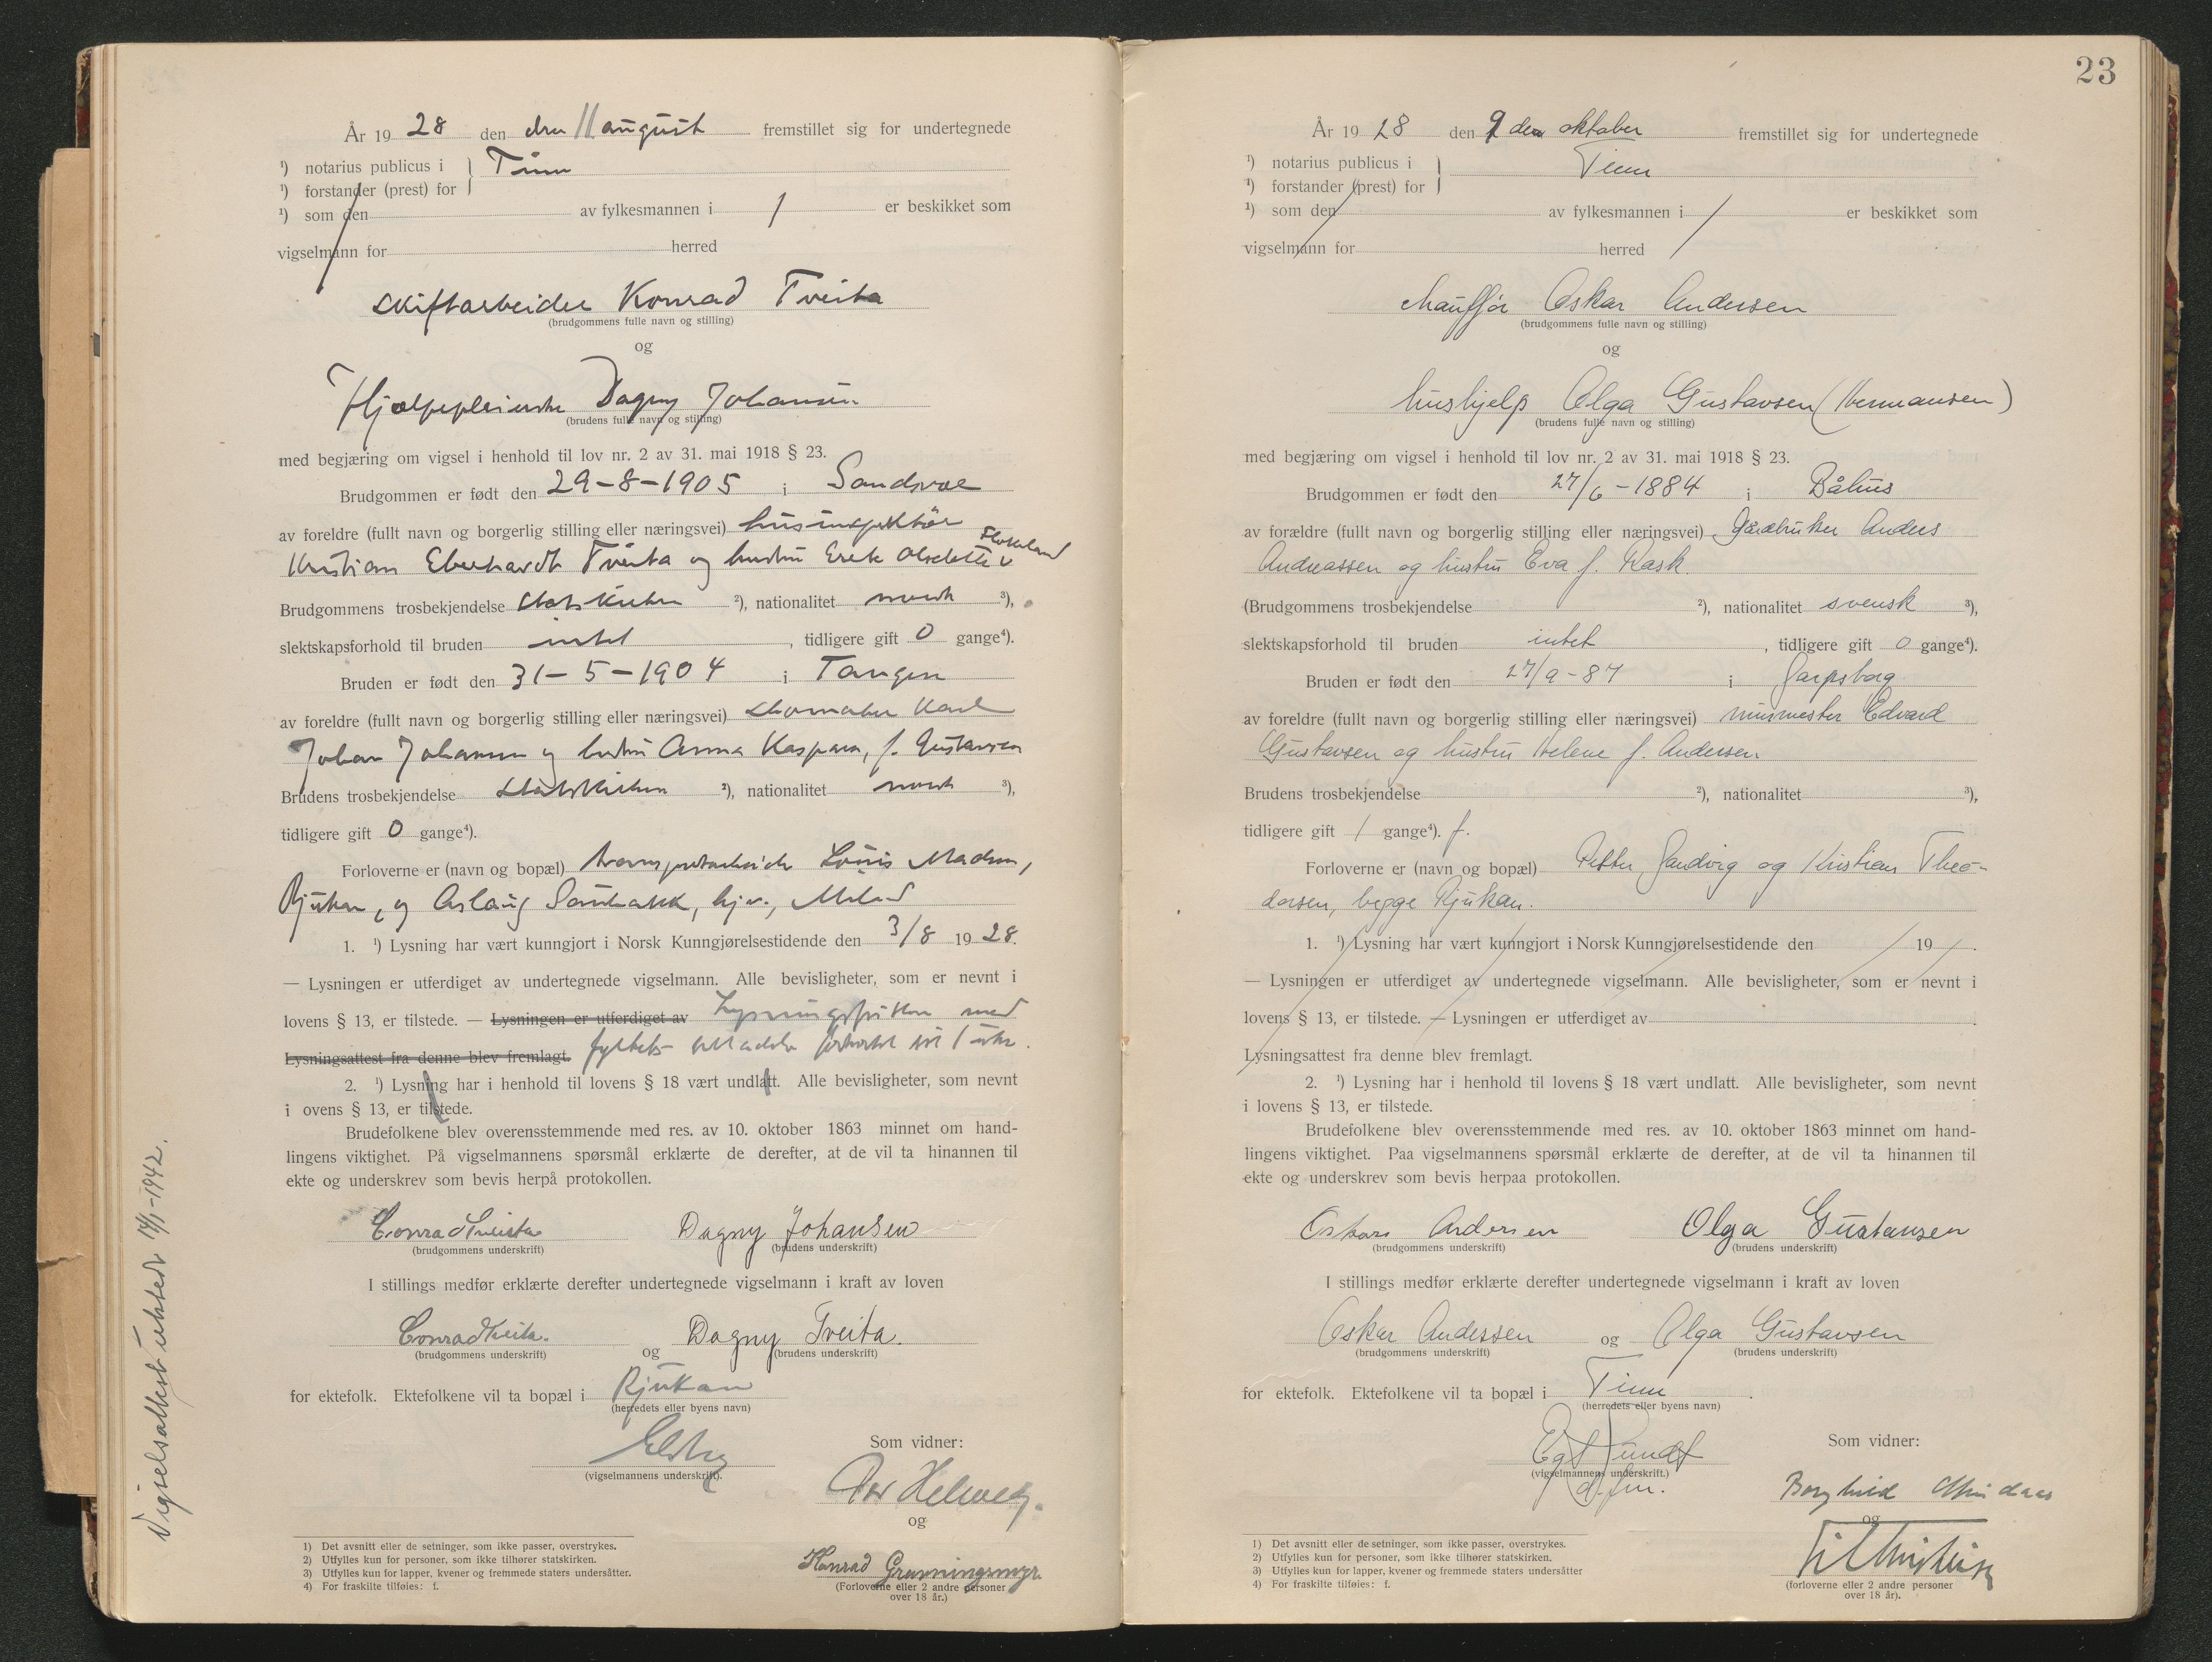 År 19 28 den den 11 august fremstillet sig for undertegnede
¹) notarius publicus i } Tinn
¹) forstander (prest) for
¹) som den av fylkesmannen i / er beskikket som
vigselmann for herred
skiftarbeider Konrad Tveita
(brudgommens fulle navn og stilling)
og
Hjælpepleierske Dagny Johansen
(brudens fulle navn og stilling)
med begjæring om vigsel i henhold til lov nr. 2 av 31. mai 1918 § 23.
Brudgommen er født den 29-8-1905 i
av foreldre (fullt navn og borgerlig stilling eller næringsvei) husinspektør
Kristian Eberhardt Tveita og hustru
Brudgommens trosbekjendelse Statskirken ²), nationalitet norsk ³),
slektskapsforhold til bruden intet, tidligere gift 0 gange⁴).
Bruden er født den 31-5-1904 i Tangen
av foreldre (fullt navn og borgerlig stilling eller næringsvei) skomaker Karl
Johan Johansen og hustru Anna Kaspara, f. Gustavsen
Brudens trosbekjendelse Statskirken ²), nationalitet norsk ³),
tidligere gift 0 gange⁴).
Forloverne er (navn og bopæl) transportarbeider Louis Madsen,
Rjukan, og Aslaug
1. ¹) Lysning har vært kunngjort i Norsk Kunngjørelsestidende den 3/8 19 28.
— Lysningen er utferdiget av undertegnede vigselmann. Alle bevisligheter, som er nevnt i
lovens § 13, er tilstede. — Lysningen er utferdiget av Lysningsfristen med
Lysningsattest fra denne blev fremlagt. fylkets
2. ¹) Lysning har i henhold til lovens § 18 vært undlatt. Alle bevisligheter, som nevnt
i ovens § 13, er tilstede.
Brudefolkene blev overensstemmende med res. av 10. oktober 1863 minnet om hand-
lingens viktighet. På vigselmannens spørsmål erklærte de derefter, at de vil ta hinannen til
ekte og underskrev som bevis herpå protokollen.
Conrad Tveita Dagny Johansen
(brudgommens underskrift) (brudens underskrift)
I stillings medfør erklærte derefter undertegnede vigselmann i kraft av loven
Conrad Tveita. og Dagny Tveita.
(brudgommens underskrift) (brudens underskrift)
for ektefolk. Ektefolkene vil ta bopæl i Rjukan
(herredets eller byens navn)
(vigselmannens underskrift).
Som vidner:
Per Helweg.
og
Konrad
(Forloverne eller 2 andre personer
over 18 år.)
1) Det avsnitt eller de setninger, som ikke passer, overstrykes.
2) Utfylles kun for personer, som ikke tilhører statskirken.
3) Utfylles kun for lapper, kvener og fremmede staters undersåtter.
4) For fraskilte tilføies: f.
Vigselsattest utstedt 14/1-1942.
23
År 19 28 den 9 den oktober fremstillet sig for undertegnede
¹) notarius publicus i } Tinn
¹) forstander (prest) for
¹) som den av fylkesmannen i / er beskikket som
vigselmann for herred
chauffør Oskar Andersen
(brudgommens fulle navn og stilling)
og
hushjelp Olga Gustavsen (Hermansen)
(brudens fulle navn og stilling)
med begjæring om vigsel i henhold til lov nr. 2 av 31. mai 1918 § 23.
Brudgommen er født den 27/6-1884 i Båhus
av forældre (fullt navn og borgerlig stilling eller næringsvei) gårdbruker Anders
Andreassen og hustru Eva f. Rask.
(Brudgommens trosbekjendelse ²), nationalitet svensk ³),
slektskapsforhold til bruden intet, tidligere gift 0 gange⁴).
Bruden er født den 27/9-87 i Sarpsborg
av foreldre (fullt navn og borgerlig stilling eller næringsvei) murmester Edvard
Gustavsen og hustru Helene f. Andersen
Brudens trosbekjendelse ²), nationalitet ³),
tidligere gift 1 gange⁴). f.
Forloverne er (navn og bopæl) Petter Sandvig og Kristian Theo-
dorsen, begge Rjukan.
1. ¹) Lysning har vært kunngjort i Norsk Kunngjørelsestidende den / 19 /.
— Lysningen er utferdiget av undertegnede vigselmann. Alle bevisligheter, som er nevnt i
lovens § 13, er tilstede. — Lysningen er utferdiget av .
Lysningsattest fra denne blev fremlagt.
2. ¹) Lysning har i henhold til lovens § 18 vært undlatt. Alle bevisligheter, som nevnt
i lovens § 13, er tilstede.
Brudefolkene blev overensstemmende med res. av 10. oktober 1863 minnet om hand-
lingens viktighet. Paa vigselmannens spørsmål erklærte de derefter, at de vil ta hinannen til
ekte og underskrev som bevis herpaa protokollen.
Oskar Andersen Olga Gustavsen
(brudgommens underskrift) (brudens underskrift)
I stillings medfør erklærte derefter undertegnede vigselmann i kraft av loven
Oskar Andersen og Olga Gustavsen
(brudgommens underskrift) (brudens underskrift)
for ektefolk. Ektefolkene vil ta bopæl i Tinn.
(herredets eller byens navn)
(vigselmannens underskrift.)
Som vidner:
Borghild
og
(forloverne eller 2 andre personer
over 18 år).
1) Det avsnitt eller de setninger, som ikke passer, overstrykes.
2) Utfylles kun for personer, som ikke tilhører statskirken.
3) Utfylles kun for lapper, kvener og fremmede staters undersåtter
4) For fraskilte tilføies: f.